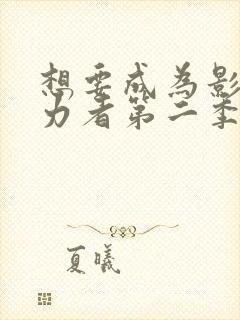 想要成为影
力者第二季
夏曦